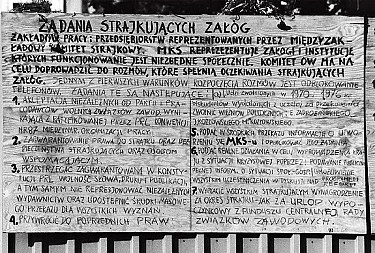 ŻĄDANIA STRAJKUJĄCYCH ZAŁÓG
ZAKŁADÓW PRACY I PRZEDSIĘBIORSTW REPREZENTOWANYCH PRZEZ MIĘDZYZAK-
ŁADOWY KOMITET STRAJKOWY. MKS REPREZENTUJE ZAŁOGI I INSTYTUCJE
KTÓRYCH FUNKCJONOWANIE JEST NIEZBĘDNE SPOŁECZNIE. KOMITET ÓW MA NA
CELU DOPROWADZIĆ DO ROZMÓW, KTÓRE SPEŁNIĄ OCZEKIWANIA STRAJKUJĄCYCH
ZAŁÓG. JEDNYM Z PIERWSZYCH WARUNKÓW ROZPOCZĘCIA ROZMÓW JEST ODBLOKOWANIE
TELEFONÓW. ŻĄDANIA TE SĄ NASTĘPUJĄCE:
1. AKCEPTACJA NIEZALEŻNYCH OD PARTII I PRA-
CODAWCÓW WOLNYCH ZWIĄZKÓW ZAWOD. WYNI-
KAJĄCA Z RATYFIKOWANEJ PRZEZ PRL KONWENCJI
NR 87 MIĘDZYNAR. ORGANIZACJI PRACY.
2. ZAGWARANTOWANIE PRAWA DO STRAJKU ORAZ BEZ-
PIECZEŃSTWA STRAJKUJĄCYCH ORAZ OSOBOM
WSPOMAGAJĄCYM.
3. PRZESTRZEGAĆ ZAGWARANTOWANĄ W KONSTY-
TUCJI PRL WOLNOŚĆ SŁOWA, DRUKU I PUBLIKACJI
A TYM SAMYM NIE REPRESJONOWAĆ NIEZALEŻNYCH
WYDAWNICTW ORAZ UDOSTĘPNIĆ ŚRODKI MASOWE-
GO PRZEKAZU DLA WSZYSTKICH WYZNAŃ.
4. PRZYWRÓCIĆ DO POPRZEDNICH PRAW
a) ludzi zwolnionych w 1970 i 1976
studentów wydalonych z uczelni za przekonania
zwolnić więźniów politycznych E. ZADROŻYŃSKIEGO,
J. KOZŁOWSKIEGO, M. KOZŁOWSKIEGO.
5. PODAĆ W ŚRODKACH PRZEKAZU INFORMACJĘ O UTWO-
RZENIU SIĘ MKS-u
6. PODJĄĆ REALNE DZIAŁANIA W CELU WYPROWADZENIA KRA-
JU Z SYTUACJI KRYZYSOWEJ POPRZEZ:
7. WYPŁACIĆ WSZYSTKIM STRAJKUJĄCYM WYNAGRODZENIE
ZA OKRES STRAJKU - JAK ZA URLOP WYPO-
CZYNKOWY Z FUNDUSZU CENTRALNEJ RADY
ZWIĄZKÓW ZAWODOWYCH.